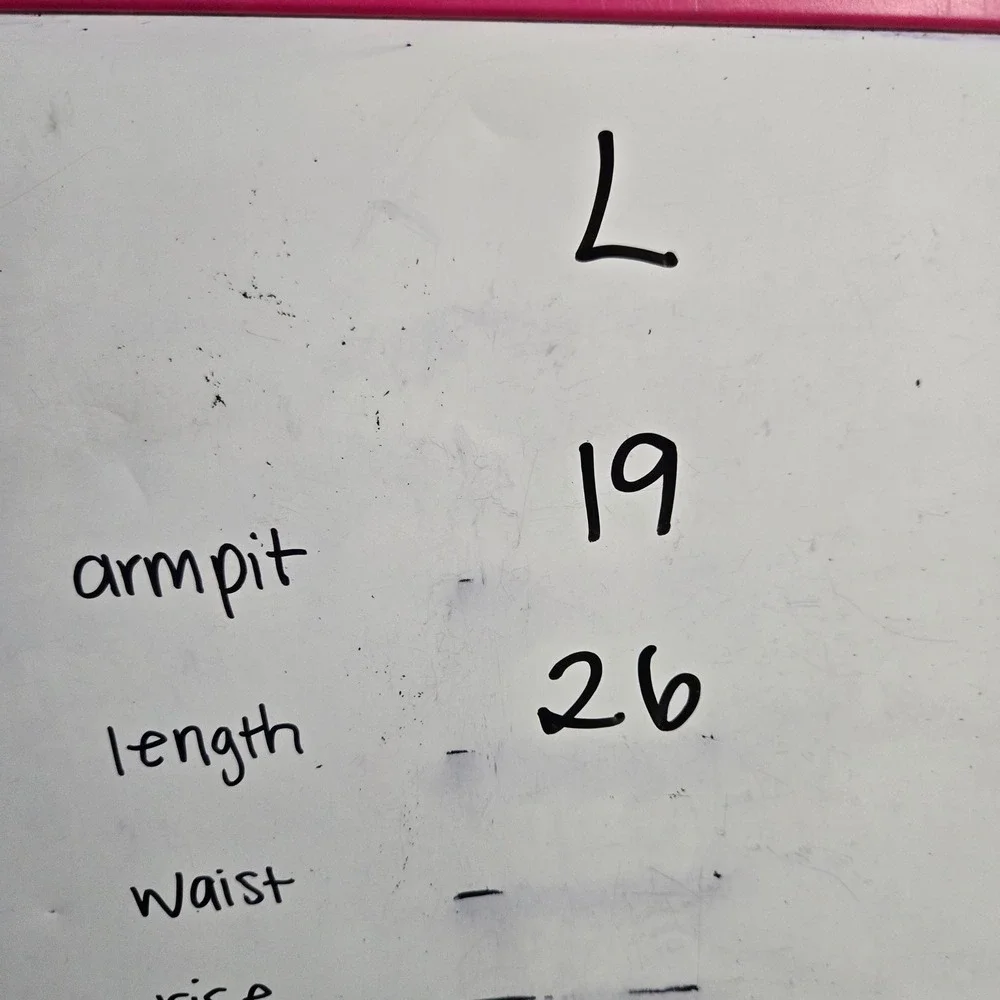 L
armpit - 19
length - 26
waist -